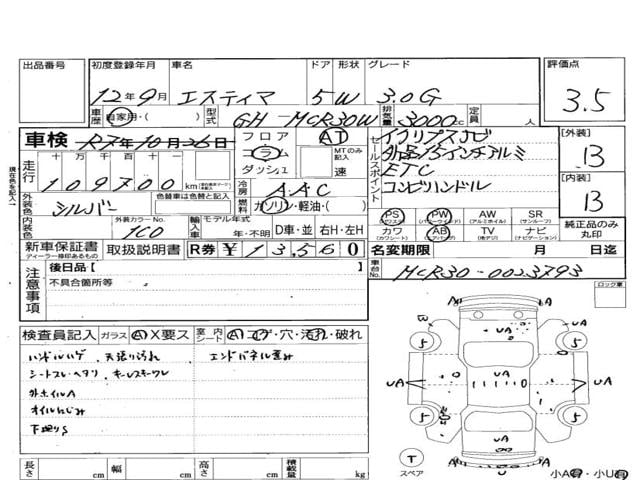 出品番号
初度登録年月
12年9月
車名
エスティマ
ドア
5
形状
W
グレード
3.0G
評価点
3.5
車歴
自家用・( )
型式
GH-MCR30W
排気量
3000cc
定員
人
車検
R7年10月26日
フロア
コラム
ダッシュ
AT
MTのみ記入
速
セールスポイント
イクリプスナビ
外品15インチアルミ
ETC
コンビハンドル
[外装]
B
[内装]
B
走行
十 万 千 百 十 一
109700
km
冷房
AAC
外装色
シルバー
色替車は色替と記入
燃料
ガソリン・軽油・( )
PS
(パワステ)
PW
(パワーウインド)
AW
(アルミホイル)
SR
(サンルーフ)
カワ
(カワシート)
AB
(エアバッグ)
TV
(地デジ)
ナビ
(ナビゲーション)
純正品のみ丸印
内装色
外装カラーNo.
1C0
輸入車
モデル年式
年・不明
D車・並
右H・左H
新車保証書
ディーラー捺印あるもの
取扱説明書
R券
¥13,560
名変期限
月
日迄
車台No.
MCR30-0023793
現在色を記入
注意事項
後日品[ ]
不具合箇所等
ロック車
検査員記入
ガラス
A・X要ス
室内シート
A・コゲ・穴・汚れ・破れ
ハンドルハゲ、天張り汚れ
エンドパネル歪み
シートスレ・ヘタリ キーレスキーワレ
外ホイルA
オイルにじみ
下廻りS
長さ
cm
幅
cm
高さ
cm
積載量
kg
5
5
5
5
UA
UA
UA
UA
A
UA
UA
UA
U
T
スペア
小A・小U